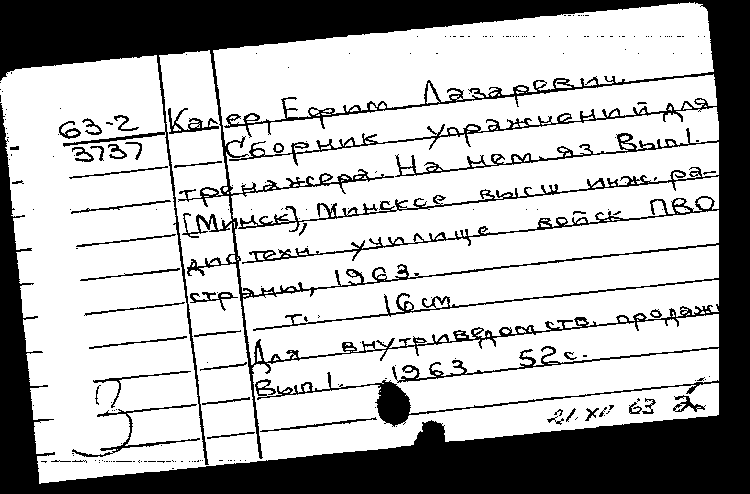 63-2
3737
Калер, Ефим Лазаревич.
Сборник упражнений для
тренажера. На нем. яз. Вып.1.
[Минск], Минское высш инж. ра-
диотехн. училище войск ПВО
страны, 1963.
т. 16 см.
Для внутриведомств. продажи
Вып.1. 1963. 52 с.
3
21.XII 63